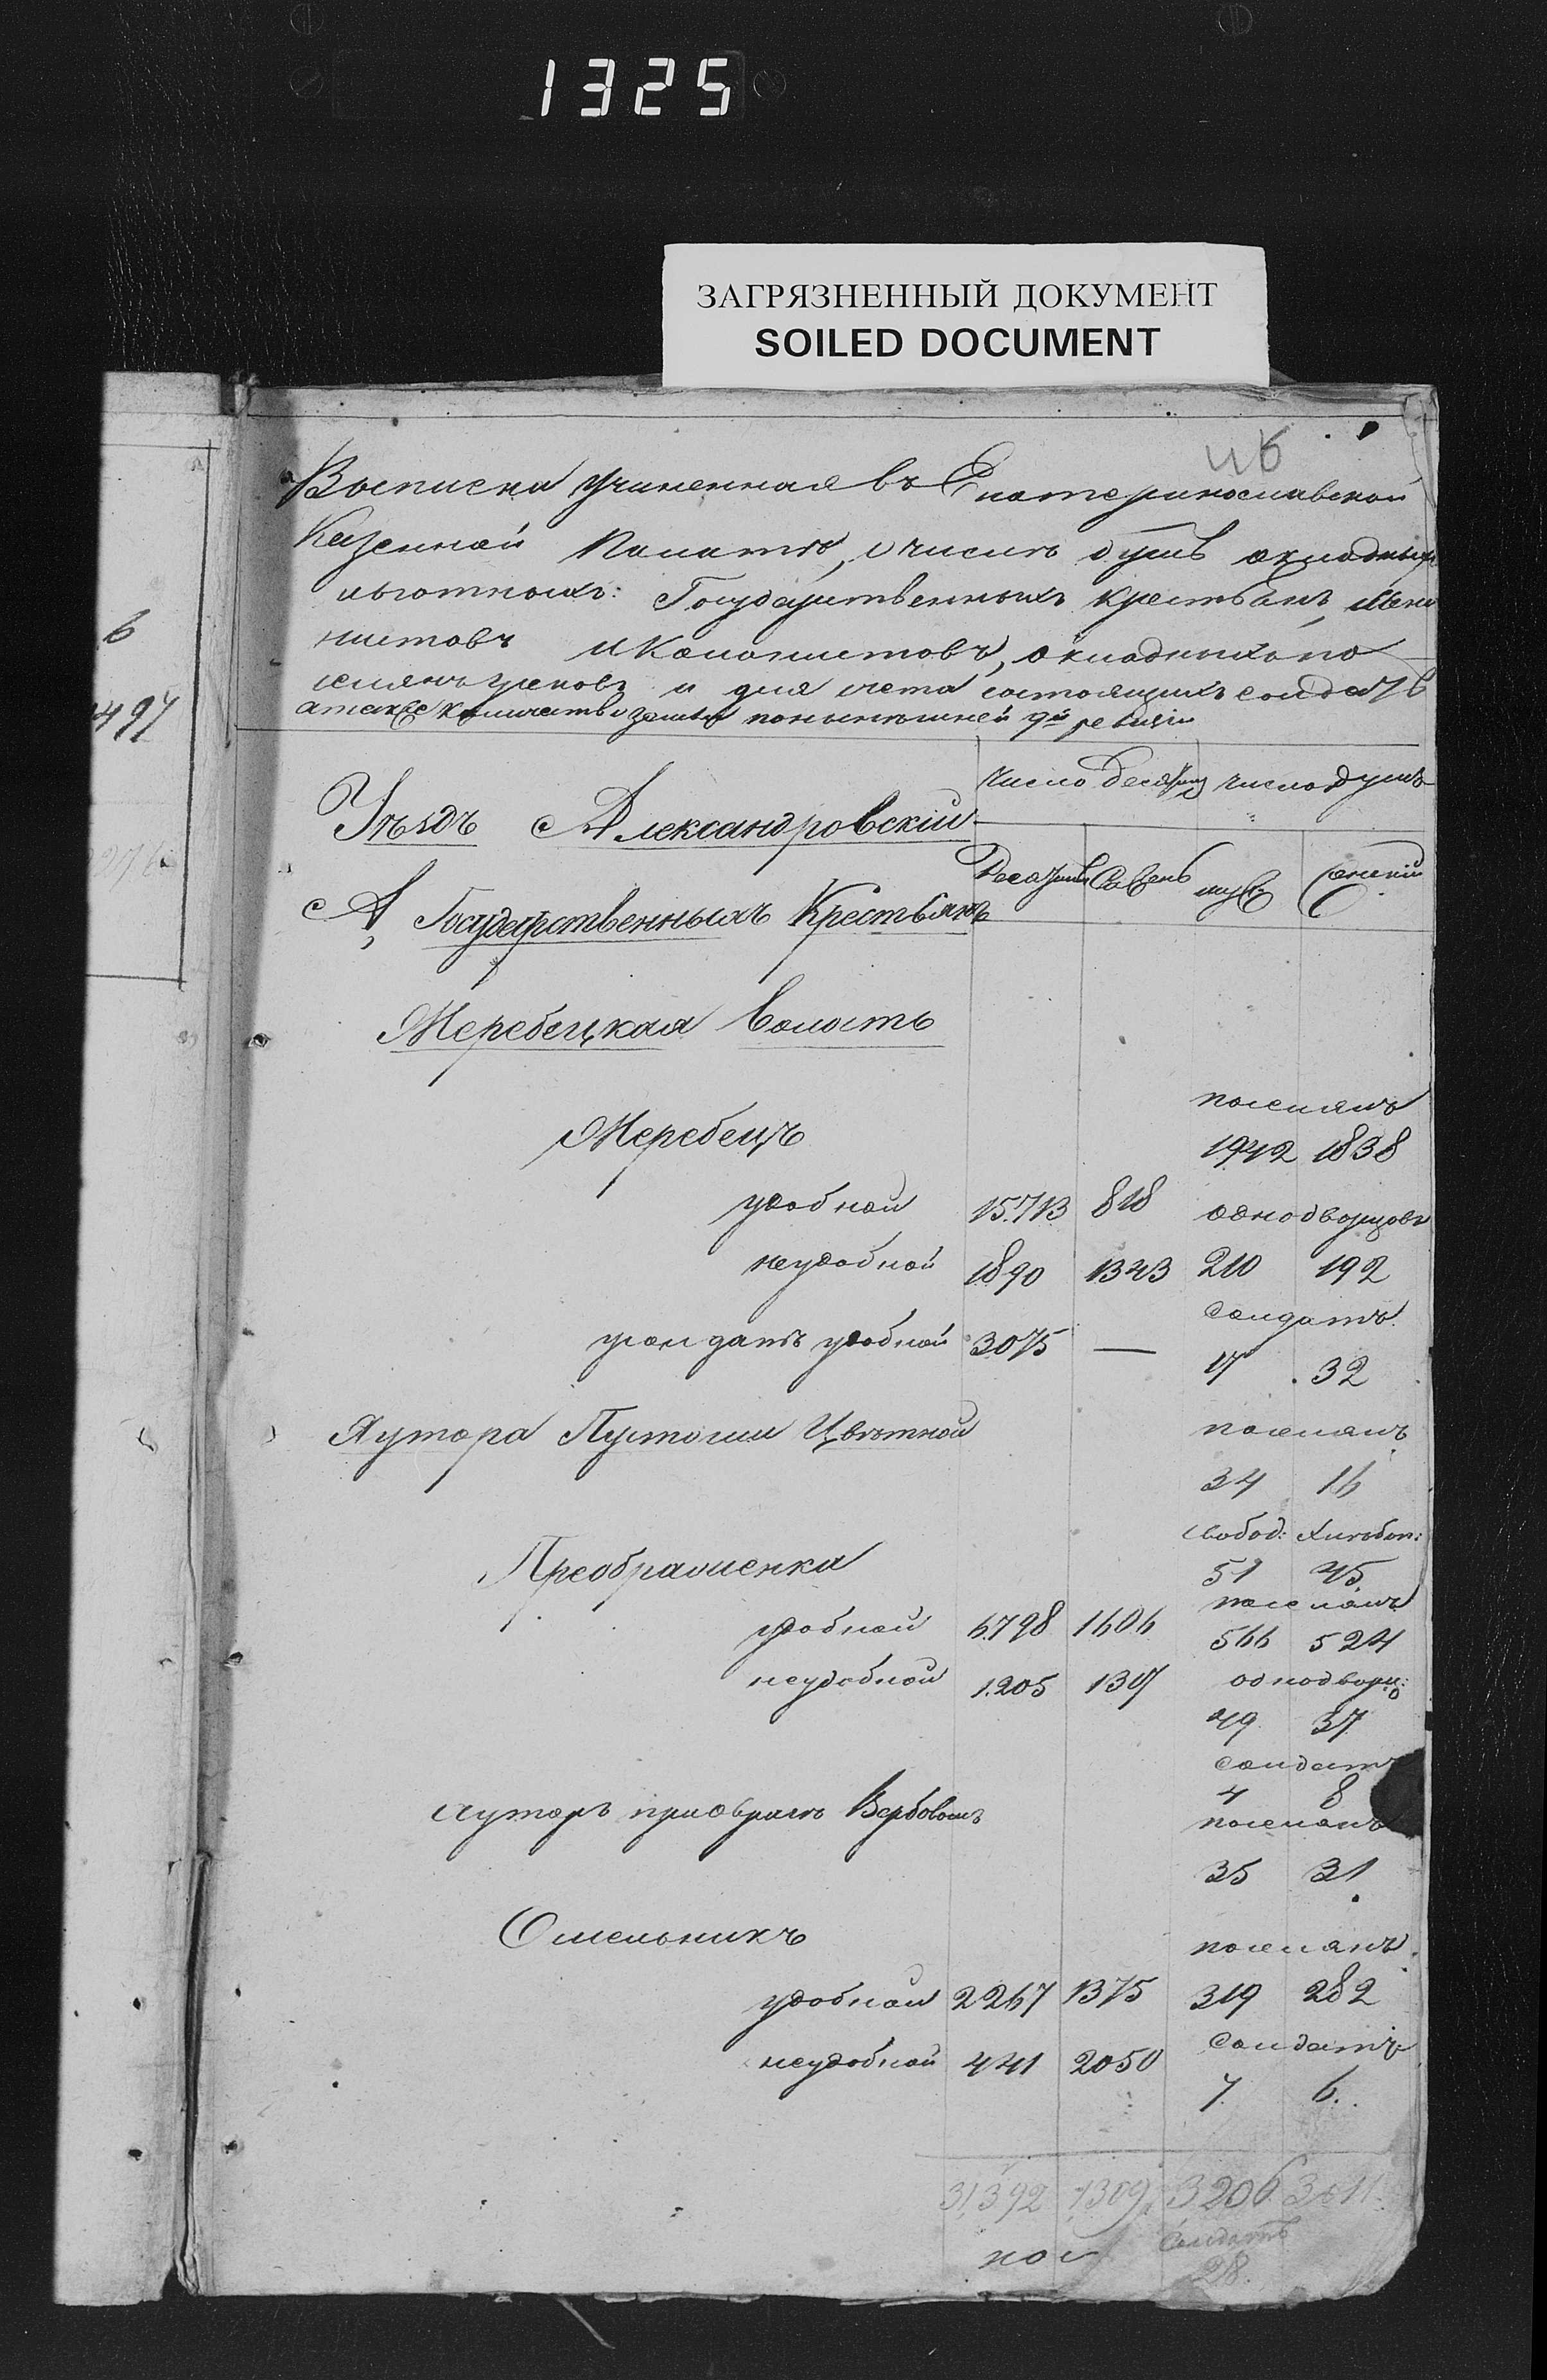 1325
ЗАГРЯЗНЕННЫЙ ДОКУМЕНТ
SOILED DOCUMENT
Выписка учиненная въ Екатеринославской
Казенной Палатѣ, о числѣ душъ окладныхъ
льготныхъ: Государственныхъ крестьянъ, Мено
нистовъ и Колонистовъ, окладныхъ по
и для счета состоящихъ солдатъ
а также количество земли по нынешней 9й ревизіи
6
497
Число десятинъ число душъ
Уѣздъ Александровскій
Десятинъ Сажень муж женскій
А, Государственныхъ Крестьянъ
Жеребецкая волость
поселянъ
Жеребецъ
1942 1838
удобной 15.713 818 однодворцовъ
неудобной 1890 1343 210 192
солдатъ
удобной 3075 — 17 32
Хутора Пустоши Цвѣтной поселянъ
34 16
свобод: хлѣбоп:
Преображенка 51 45
поселянъ
удобной 6798 1606 566 524
неудобной 1.205 137 однодворц:
49 37
солдатъ
4 8
Хуторъ при оврагѣ Вербовомъ поселянъ
35 31
Омельникъ поселянъ
удобной 2267 1375 319 282
неудобной 441 2050 солдатъ
7 6
31,392 1309 3206 3011
солдатъ
28